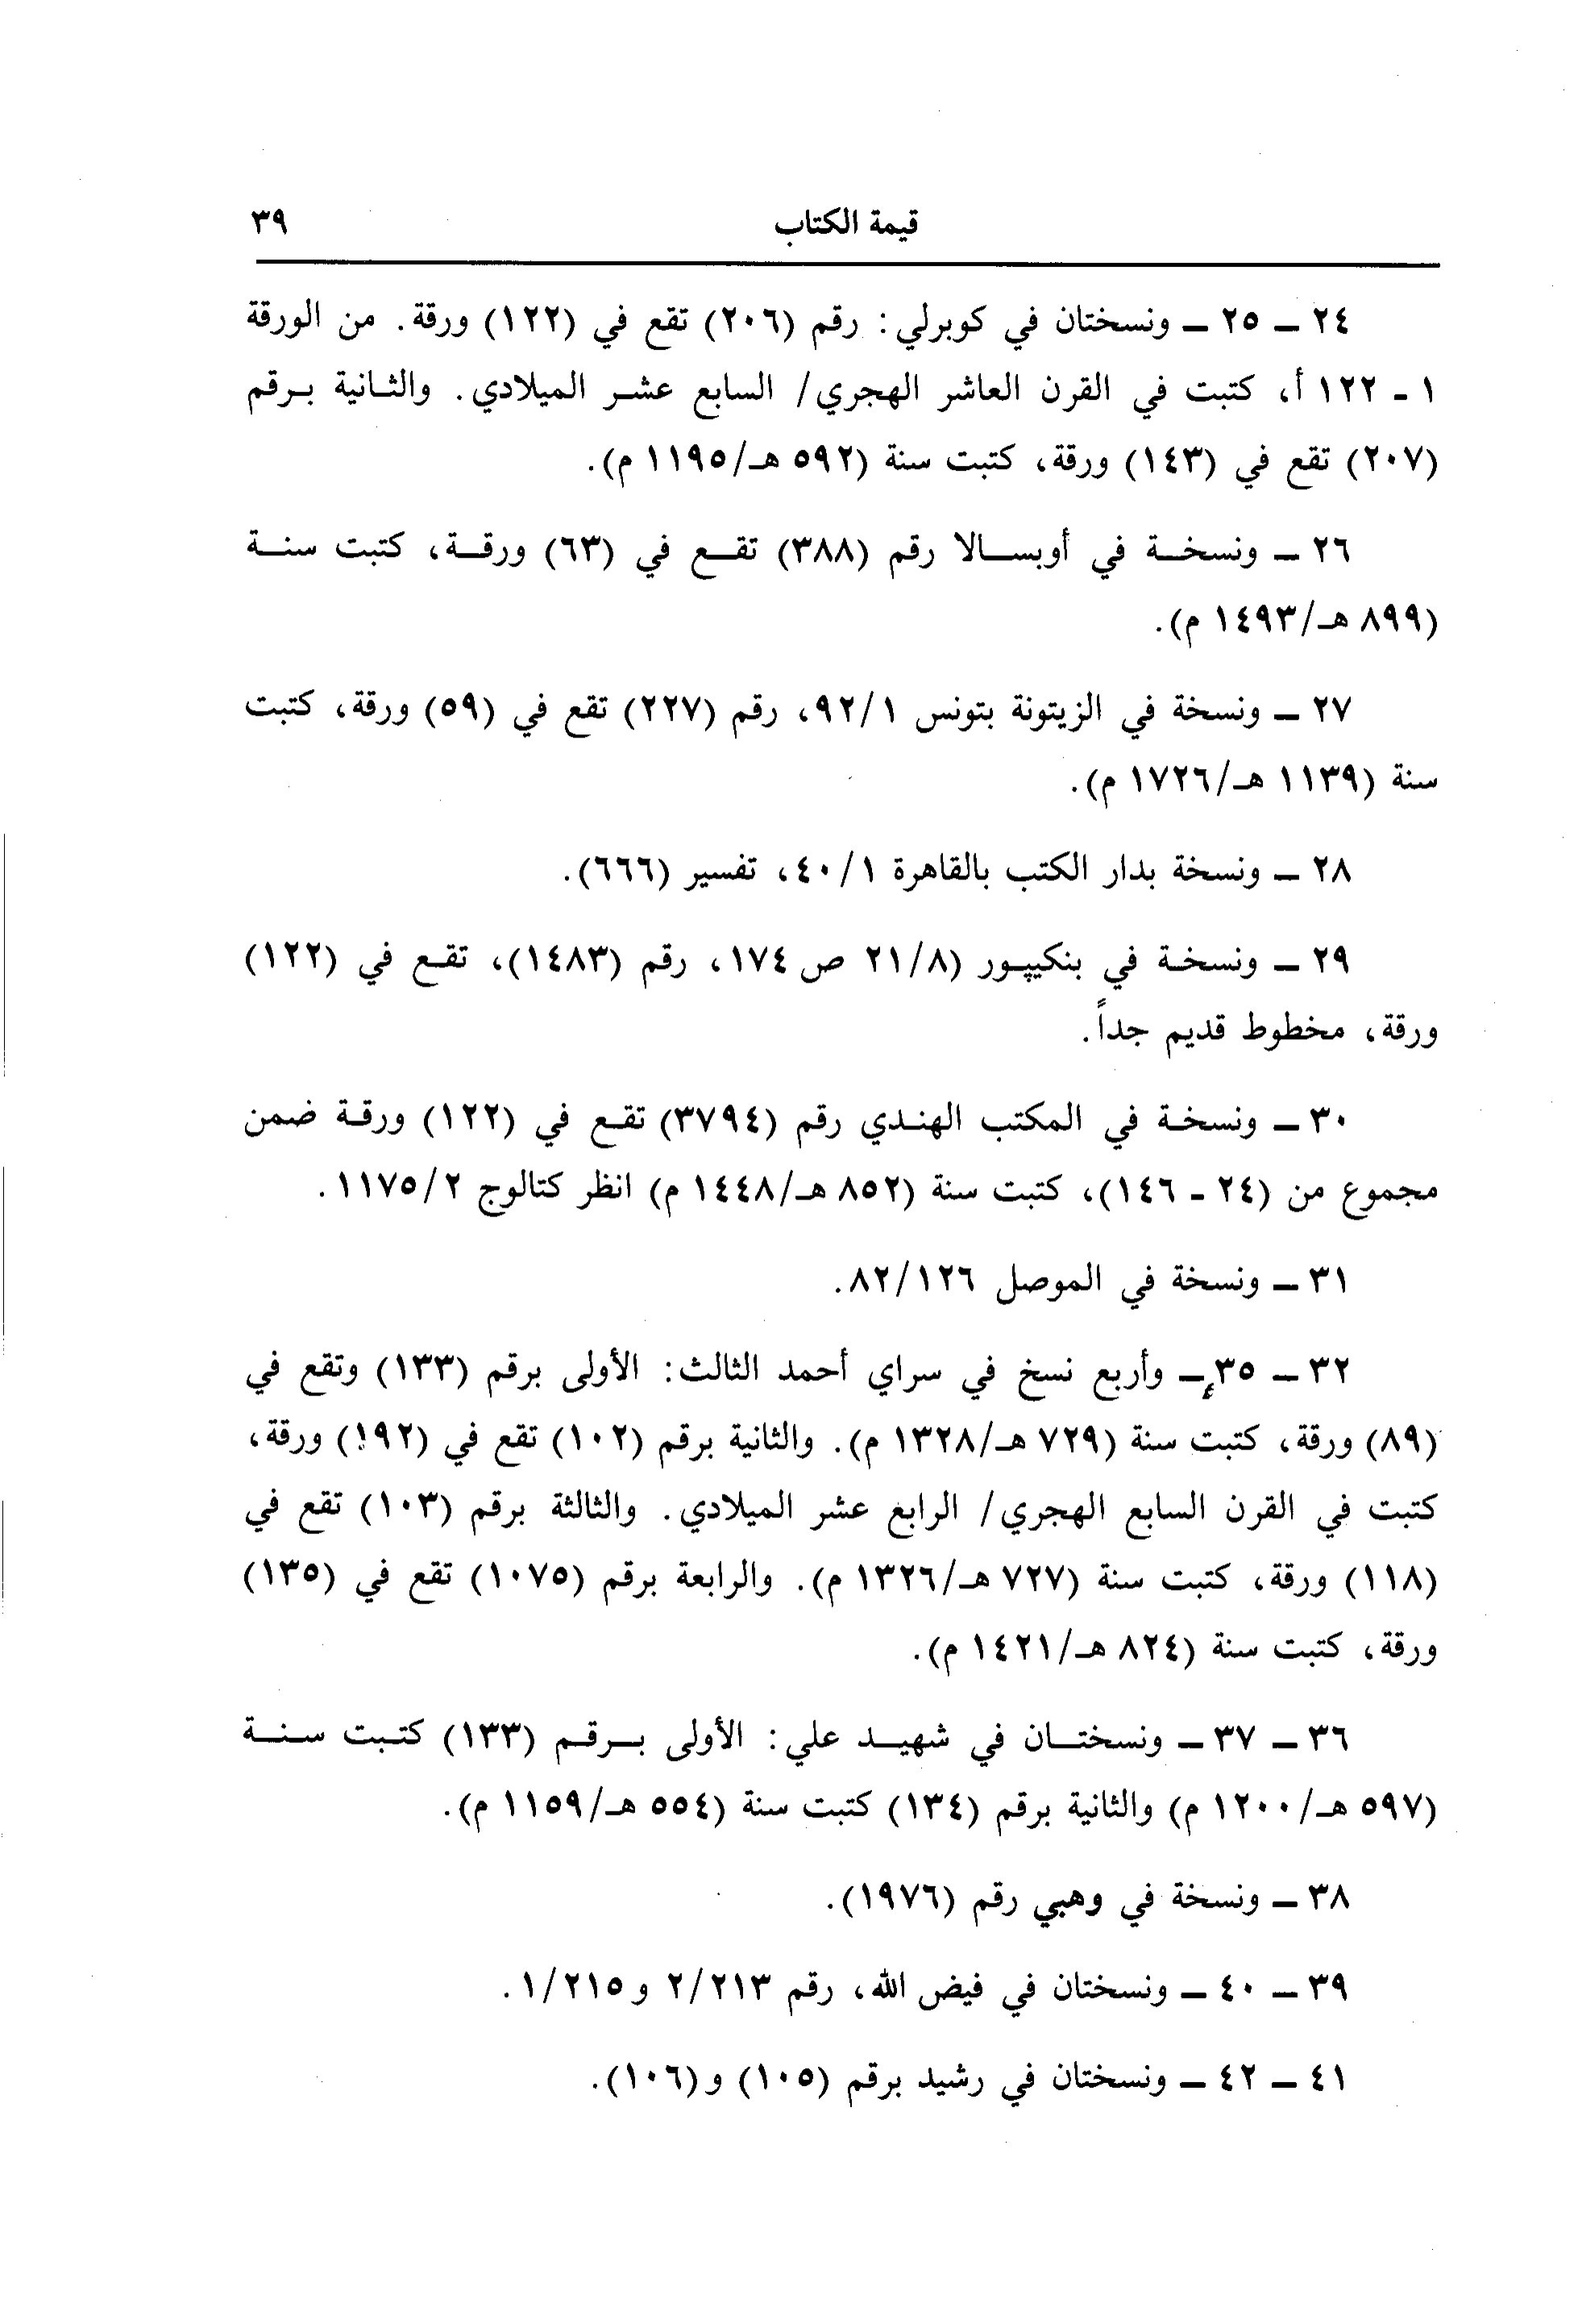 قيمة الكتاب ٣٩
٢٤ – ٢٥ – ونسختان في كوبرلي: رقم (٢٠٦) تقع في (١٢٢) ورقة. من الورقة
١ - ١٢٢ أ، كتبت في القرن العاشر الهجري/ السابع عشر الميلادي. والثانية برقم
(٢٠٧) تقع في (١٤٣) ورقة، كتبت سنة (٥٩٢ هـ/١١٩٥ م).
٢٦ – ونسخة في أوبسالا رقم (٣٨٨) تقع في (٦٣) ورقة، كتبت سنة
(٨٩٩ هـ/١٤٩٣ م).
٢٧ – ونسخة في الزيتونة بتونس ٩٢/١، رقم (٢٢٧) تقع في (٥٩) ورقة، كتبت
سنة (١١٣٩ هـ/١٧٢٦ م).
٢٨ – ونسخة بدار الكتب بالقاهرة ٤٠/١، تفسير (٦٦٦).
٢٩ – ونسخة في بنكيپور (٢١/٨ ص ١٧٤، رقم (١٤٨٣)، تقع في (١٢٢)
ورقة، مخطوط قديم جداً.
٣٠ – ونسخة في المكتب الهندي رقم (٣٧٩٤) تقع في (١٢٢) ورقة ضمن
مجموع من (٢٤ - ١٤٦)، كتبت سنة (٨٥٢ هـ/١٤٤٨ م) انظر كتالوج ١١٧٥/٢.
٣١ – ونسخة في الموصل ٨٢/١٢٦.
٣٢ – ٣٥ – وأربع نسخ في سراي أحمد الثالث: الأولى برقم (١٣٣) وتقع في
(٨٩) ورقة، كتبت سنة (٧٢٩ هـ/١٣٢٨ م). والثانية برقم (١٠٢) تقع في (١٩٢) ورقة،
كتبت في القرن السابع الهجري/ الرابع عشر الميلادي. والثالثة برقم (١٠٣) تقع في
(١١٨) ورقة، كتبت سنة (٧٢٧ هـ/١٣٢٦ م). والرابعة برقم (١٠٧٥) تقع في (١٣٥)
ورقة، كتبت سنة (٨٢٤ هـ/١٤٢١ م).
٣٦ – ٣٧ – ونسختان في شهيد علي: الأولى برقم (١٣٣) كتبت سنة
(٥٩٧ هـ/١٢٠٠ م) والثانية برقم (١٣٤) كتبت سنة (٥٥٤ هـ/١١٥٩ م).
٣٨ – ونسخة في وهبي رقم (١٩٧٦).
٣٩ – ٤٠ – ونسختان في فيض الله، رقم ٢/٢١٣ و١/٢١٥.
٤١ – ٤٢ – ونسختان في رشيد برقم (١٠٥) و(١٠٦).